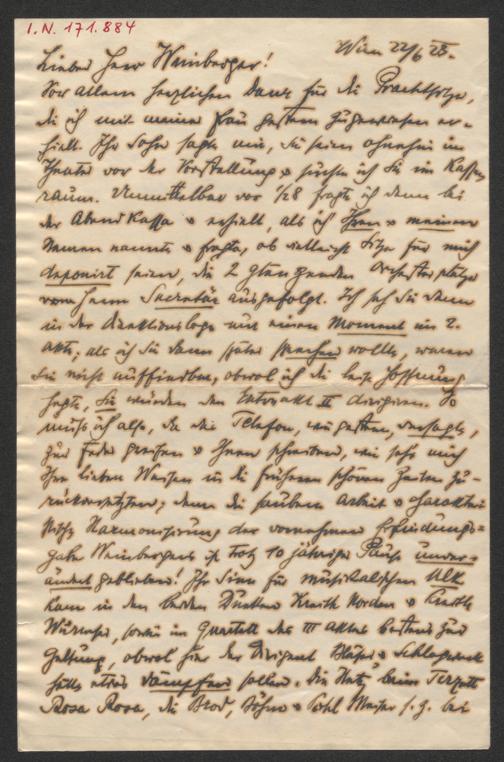 I.N. 171.884
Wien 22/6 23.
Lieber Herr Weinberger!
Vor allem herzlichen Dank für die Prachtsitze,
die ich mit meiner Frau gestern zugewiesen er-
hielt. Ihr Sohn sagte mir, Sie seien ohnehin im
Theater vor der Vorstellung & suchte ich Sie im Kassen
raum. Unmittelbar vor 1/28 fragte ich dann bei
der Abendkassa & erhielt, als ich Ihren & meinen
Namen nannte & fragte, ob vielleicht Sitze für mich
deponirt seien, die 2 glänzenden Orchestersitze
vom Herrn Secretär ausgefolgt. Ich sah Sie dann
in der Direktionsloge nur einen Moment im 2.
Akt; als ich Sie dann später sprechen wollte, waren
Sie nicht auffindbar, obwol ich die leise Hoffnung
hegte, Sie würden den Entreakt II dirigiren. So
muß ich also, da die Telefon, wie gestern, versagte,
zur Feder greifen & Ihnen schreiben, wie sehr mich
Ihre lieben Weisen in die früheren schönen Zeiten zu-
rückversetzten; denn die saubere Arbeit & charakteri
stische Harmonisirung der vornehmen Erfindungs-
gabe Weinbergers ist trotz 10 jähriger Pause unver-
ändert geblieben! Ihr Sinn für musikalischen Ulk
kam in den beiden Duetten
sowie im Quartett des III Aktes bestens zur
Geltung, obwol hier der Dirigent Bläser & Schlagwerk
hätte etwas dämpfen sollen. Die beim Terzett
Rosa Rosa, die